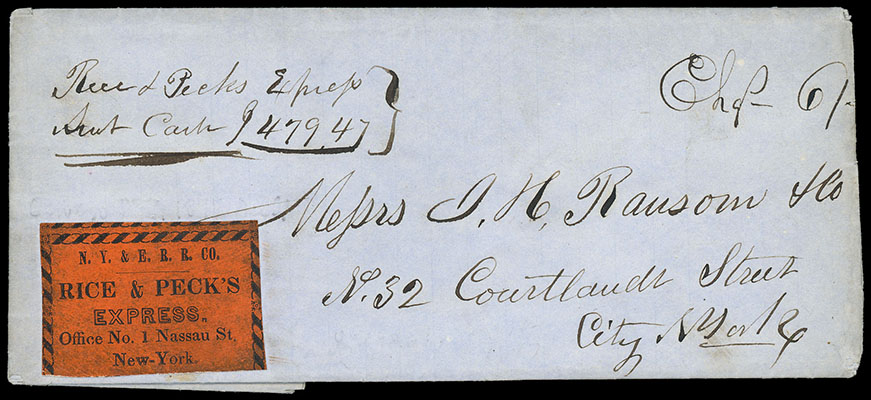 Rice & Pecks Express
Sent Cash $479,47
Chg- 6/-
Messrs J. H. Ransom & Co
No. 32 Courtlandt Street
City N York
N. Y. & E. R. R. CO.
RICE & PECK'S
EXPRESS.
Office No. 1 Nassau St.
New-York.